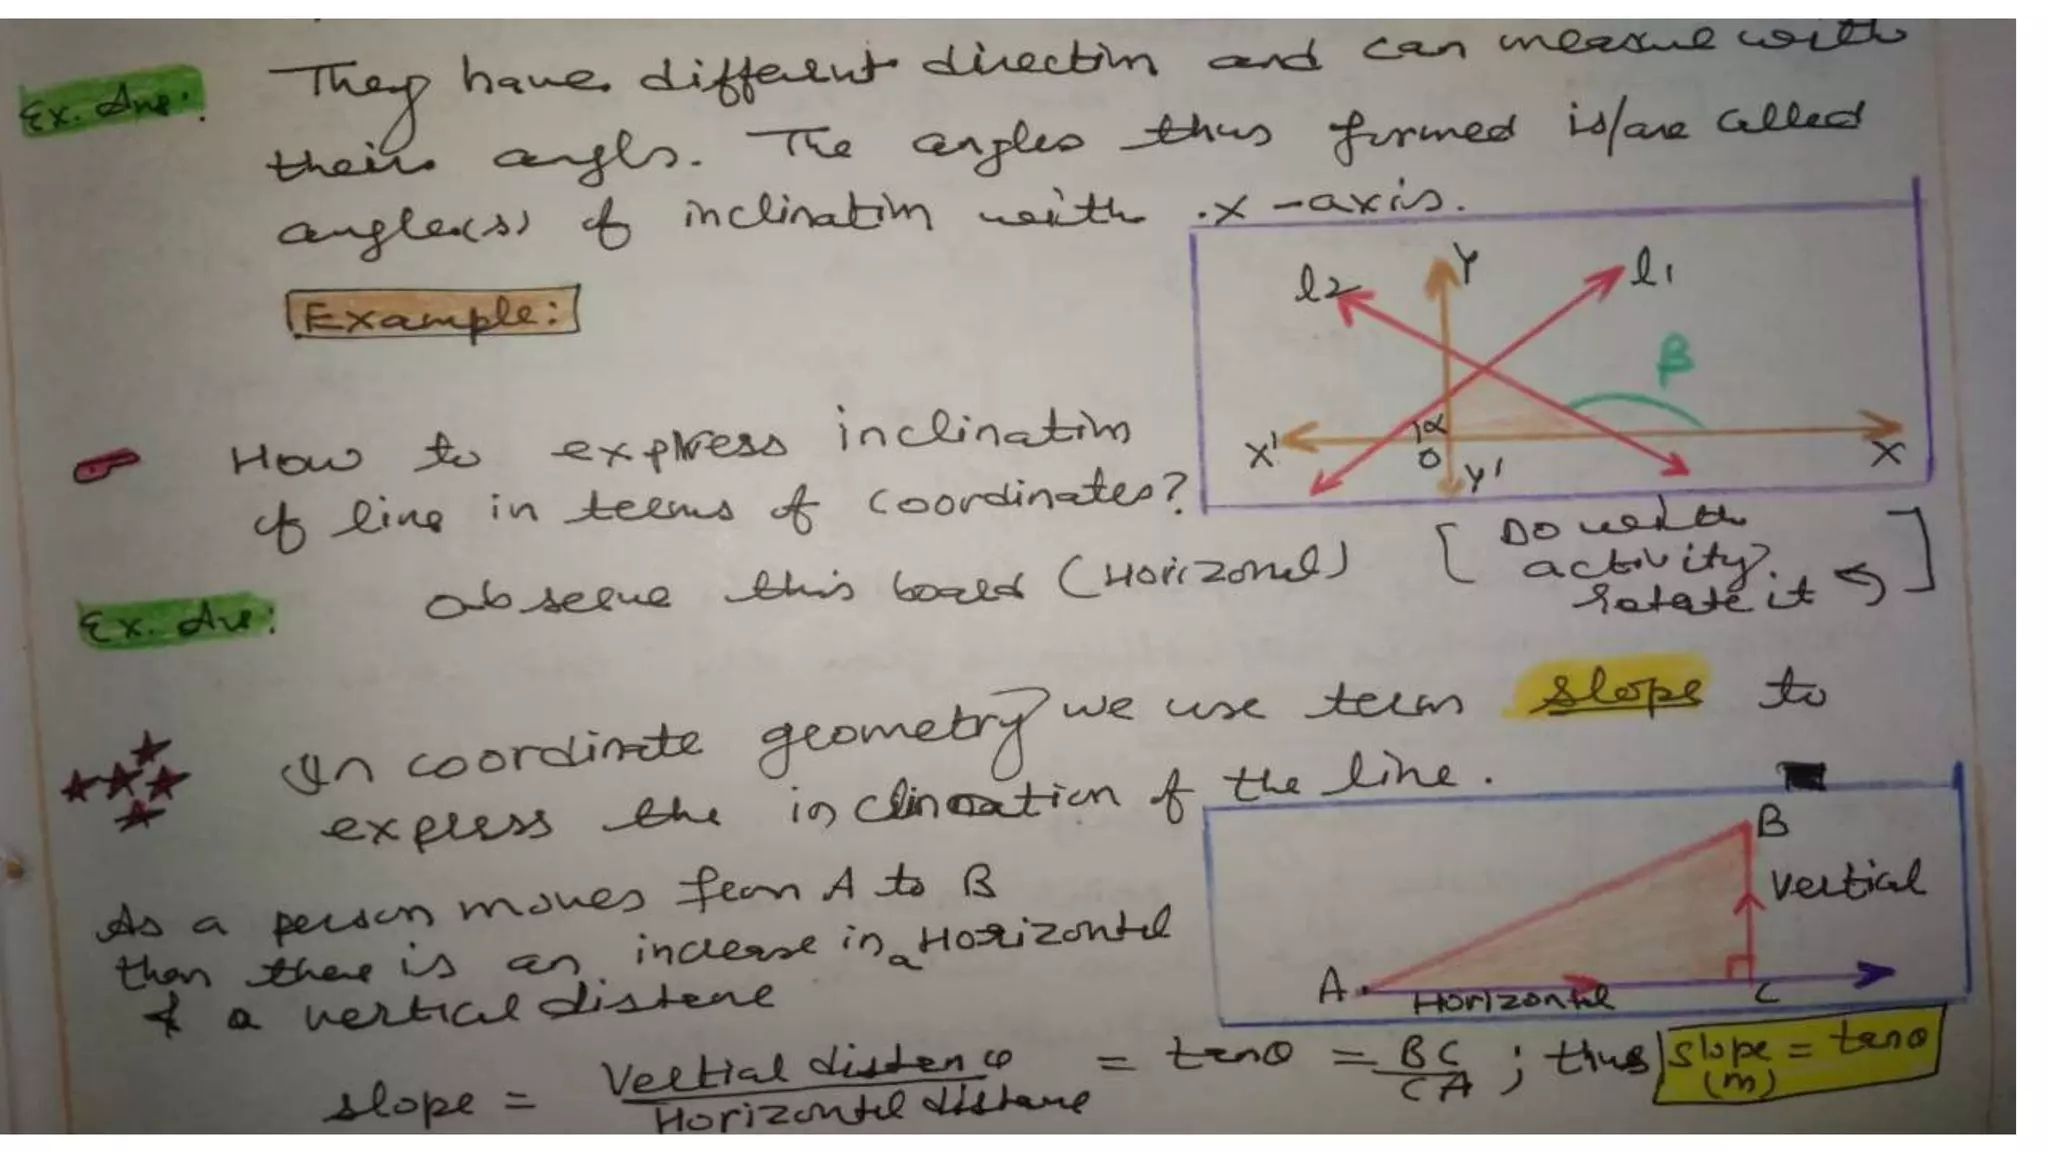 Ex. Ans: They have different direction and can measure with
their angls. The angles thus formed is/are called
angle(s) of inclination with x-axis.
Example:
l2 Y l1
β
X' α O Y' X
How to express inclination
of line in terms of coordinates?
Ex. Ans: observe this board (Horizontal) [Do with
activity
rotate it ]
In coordinate geometry we use term slope to
express the inclination of the line.
B
Vertical
A Horizontal C
As a person moves from A to B
then there is an increase in a Horizontal
& a vertical distance
slope = Vertical distance / Horizontal distance = tanθ = BC / CA ; thus slope = tanθ
(m)